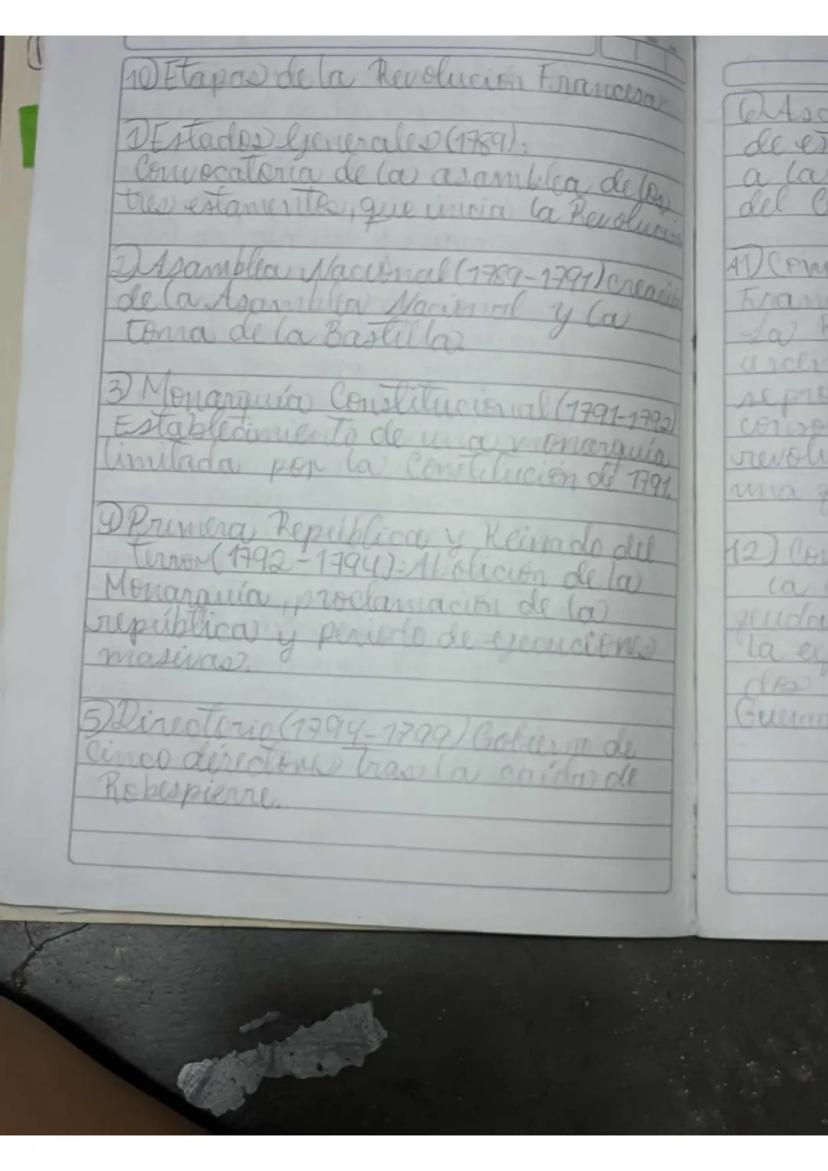 10) Etapas de la Revolución Francesa
1) Estados Generales (1789):
Convocatoria de la asamblea de los
tres estamentos, que inicia la Revolución
2) Asamblea Nacional (1789-1791) creación
de la Asamblea Nacional y la
toma de la Bastilla
3) Monarquía Constitucional (1791-1792)
Establecimiento de una monarquía
limitada por la Constitución de 1791
4) Primera República y Reinado del
Terror (1792-1794): Abolición de la
Monarquía, proclamación de la
república y periodo de ejecuciones
masivas.
5) Directorio (1794-1799) Gobierno de
cinco directores tras la caída de
Robespierre.
6)
de
a la
del
12)
la